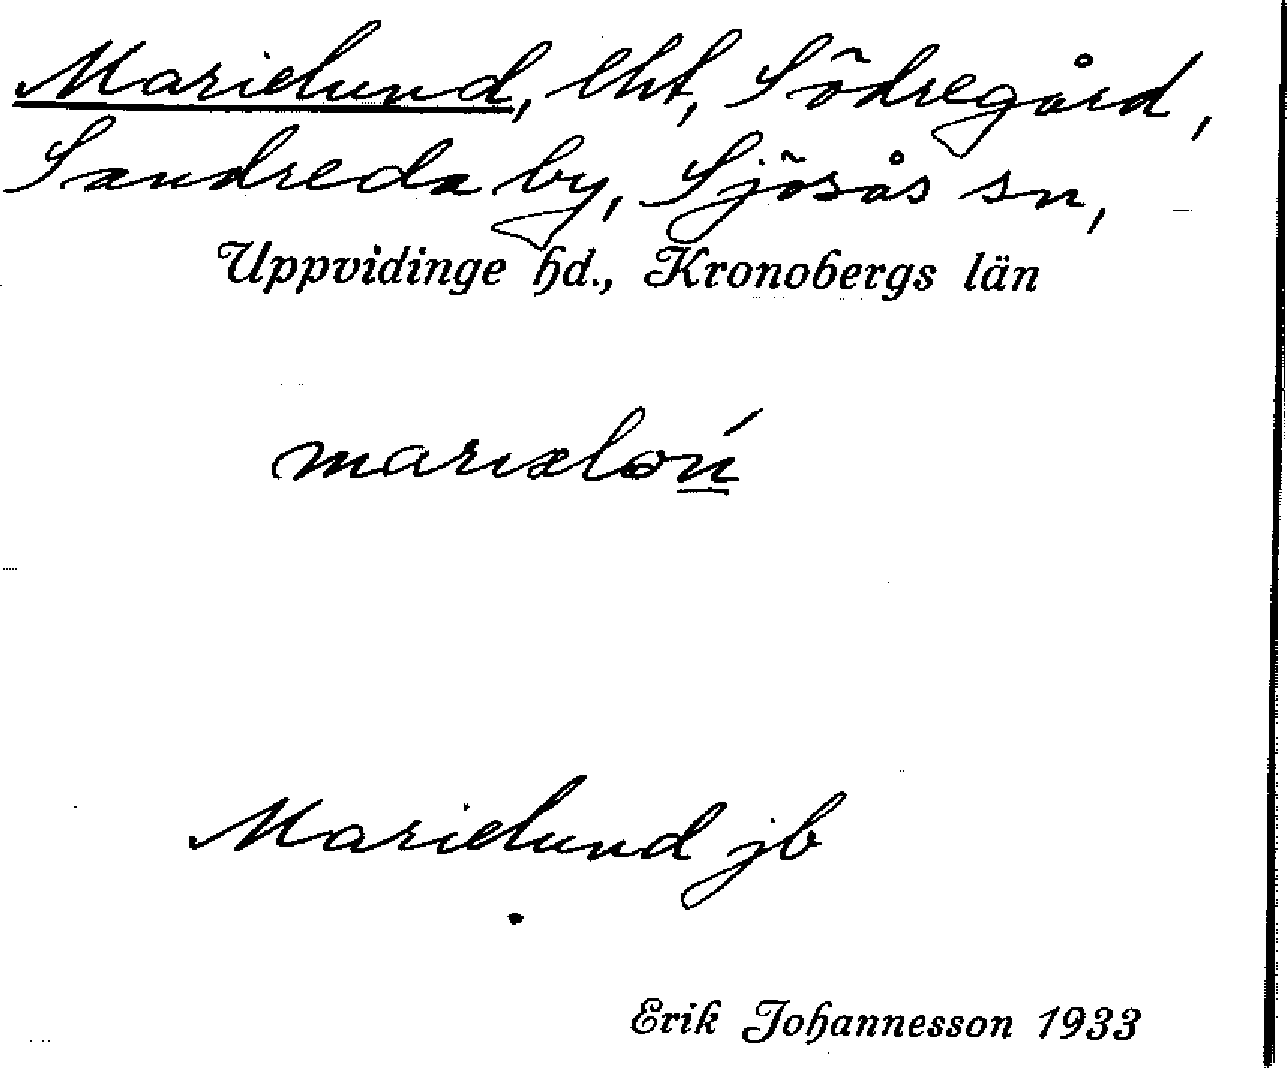 Marielund, lht, Södregård,
Sandreda by, Sjösås sn,
Uppvidinge hd., Kronobergs län
marıæloń
Marielund jb
Erik Johannesson 1933